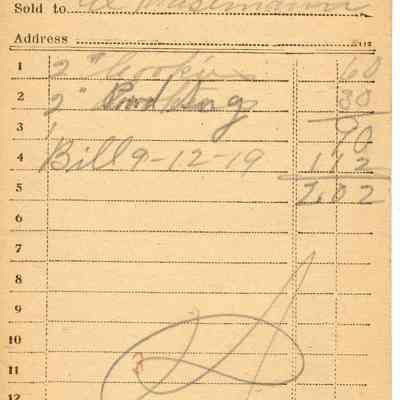 Sold to
Address
1 2 " Cookies 60
2 2 " 30
3 90
4 Bill 9-12-19 1 12
5 2.02
6
7
8
9
10
11
12